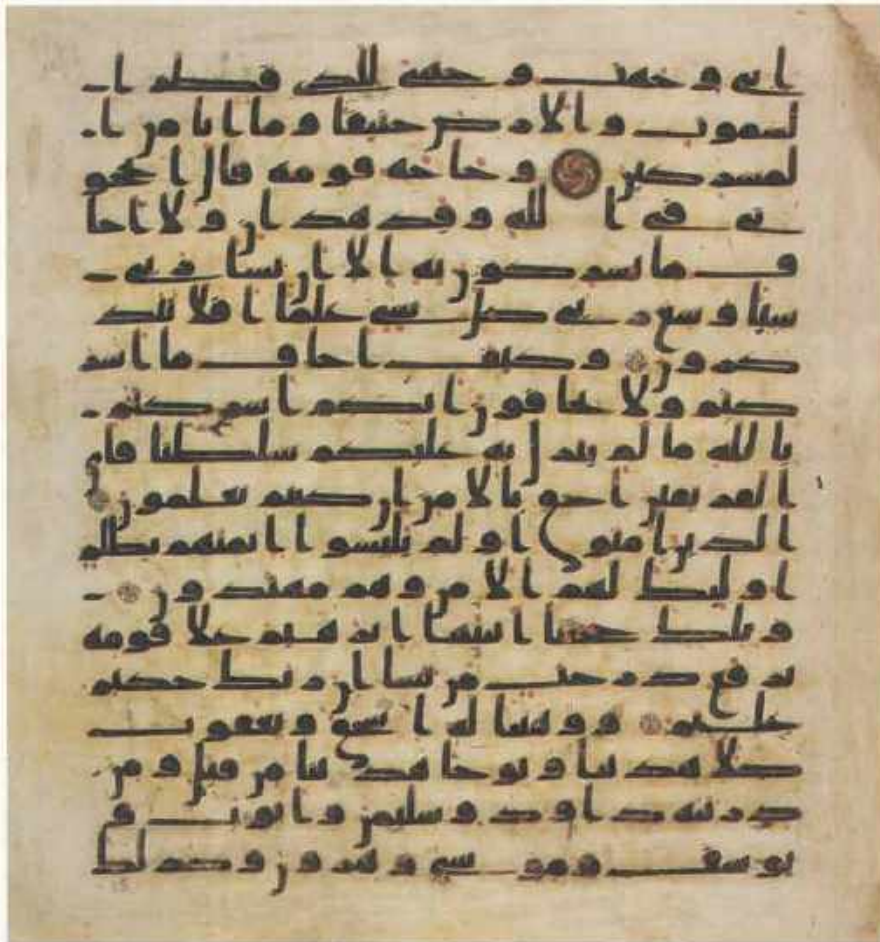 اني وجهت وجهي للذي فطر ا
لسموت والارض حنيفا وما انا من ا
لمشركين وحاجه قومه قال اتحجو
ني في ا لله وقد هدين ولا اخا
ف ما تشركون به الا ان يشا ربي
شيا وسع ربي كل شي علما افلا تتذ
كرون وكيف اخاف ما اشر
كتم ولا تخافون انكم اشركتم
بالله ما لم ينزل به عليكم سلطنا فاي
الفريقين احق بالامن ان كنتم تعلمون
الذين امنوا ولم يلبسوا ايمنهم بظلم
اوليك لهم الامن وهم مهتدون
وتلك حجتنا اتينها ابرهيم على قومه
نرفع درجت من نشا ان ربك حكيم
عليم ووهبنا له اسحق ويعقوب
كلا هدينا ونوحا هدينا من قبل ومن
ذريته داود وسليمن وايوب و
يوسف وموسى وهرون وكذلك